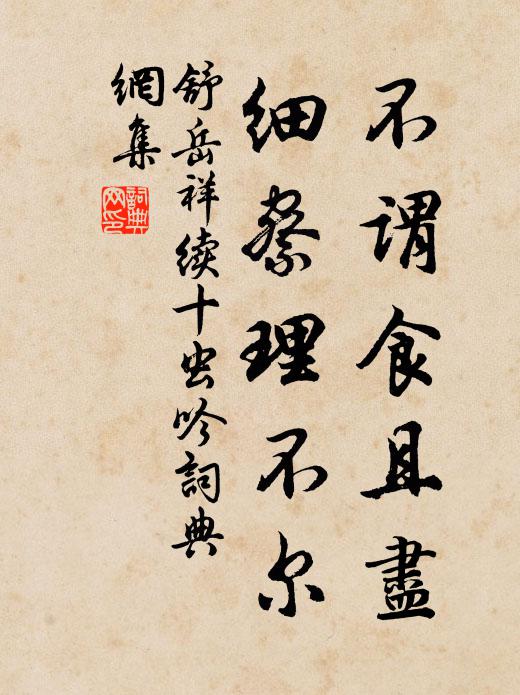 不谓食且盡
细察理不尔
舒岳祥续十虫吟詞典
網集
詞典
网印